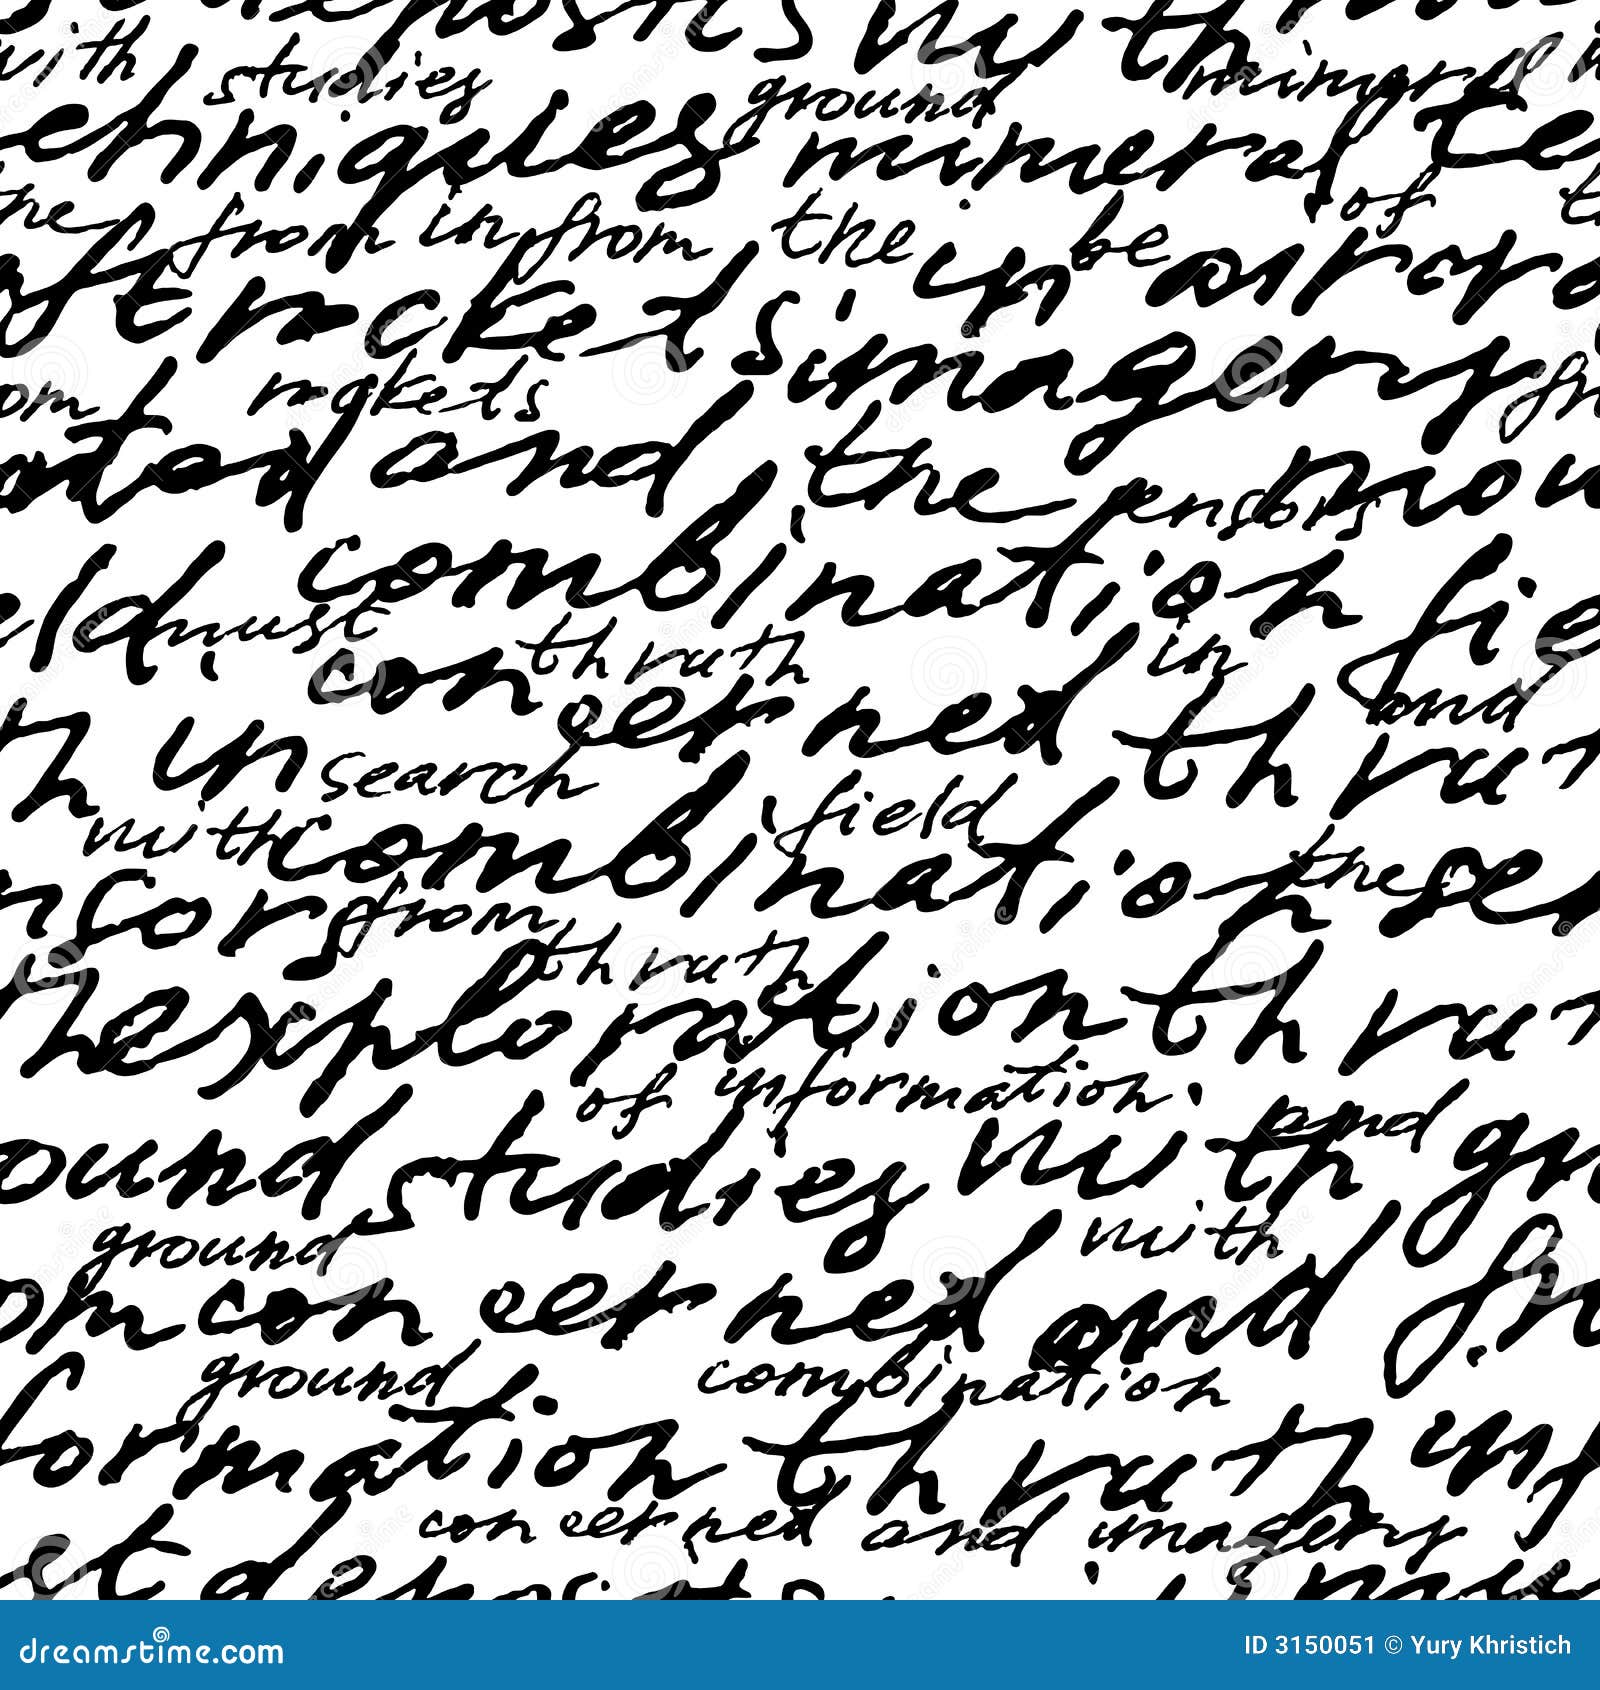 deposits with
with studies ground mineral
techniques mineral te
the from in from the be of
aft rockets in airbor
rockets imagery
om fr
and the sensors
combination fie
eld must thruth in
concerned thru and
th in search field
with combination the se
nsors from thruth
the exploration thru
of information and
ound studies with gr
ground with
om concerned and fr
ground combination
formation thruth inf
concerned and imagery
st deposits
dreamstime.com ID 3150051 © Yury Khristich